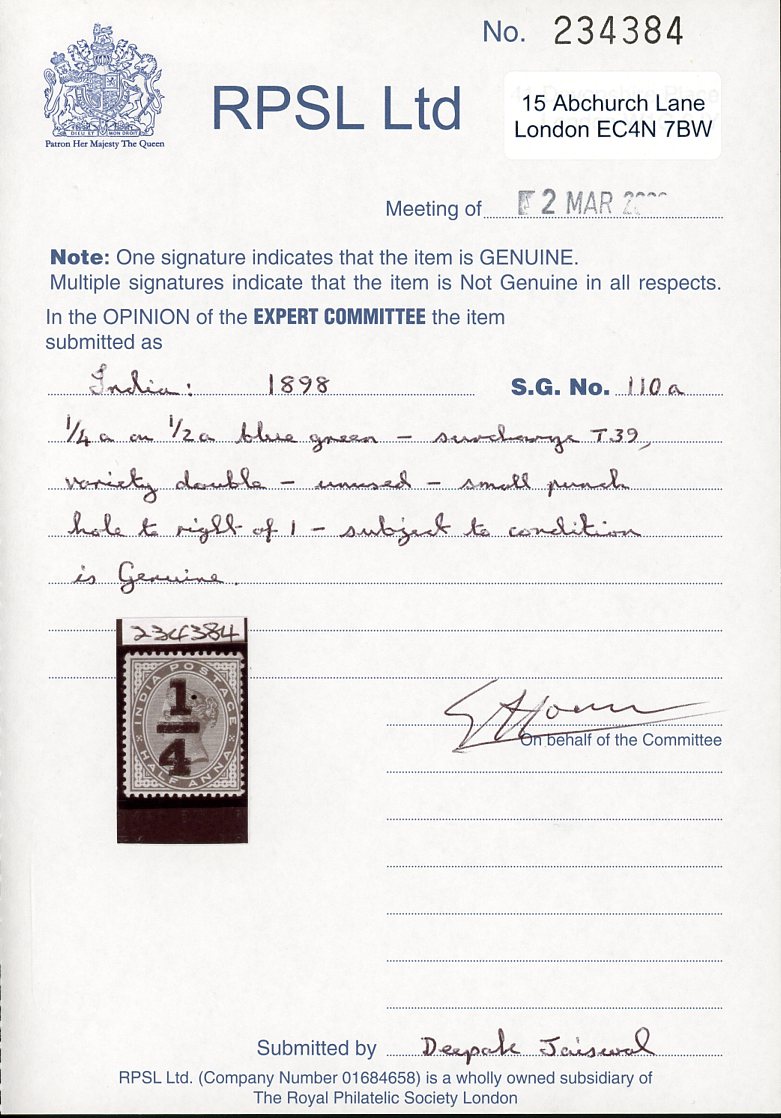 No. 234384
RPSL Ltd
15 Abchurch Lane
London EC4N 7BW
DIEU ET MON DROIT
Patron Her Majesty The Queen
Meeting of 2 MAR
Note: One signature indicates that the item is GENUINE.
Multiple signatures indicate that the item is Not Genuine in all respects.
In the OPINION of the EXPERT COMMITTEE the item
submitted as
India: 1898 S.G. No. 110a
1/4 a on 1/2 a blue green – surcharge T39,
variety double – unused – small punch
hole to right of 1 – subject to condition
is Genuine.
234384
INDIA POSTAGE
1
4
HALF ANNA
On behalf of the Committee
Submitted by Deepak Jaiswal
RPSL Ltd. (Company Number 01684658) is a wholly owned subsidiary of
The Royal Philatelic Society London